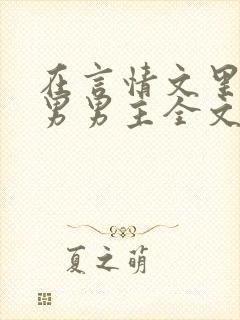 在言情文里
男男主全文
夏之萌